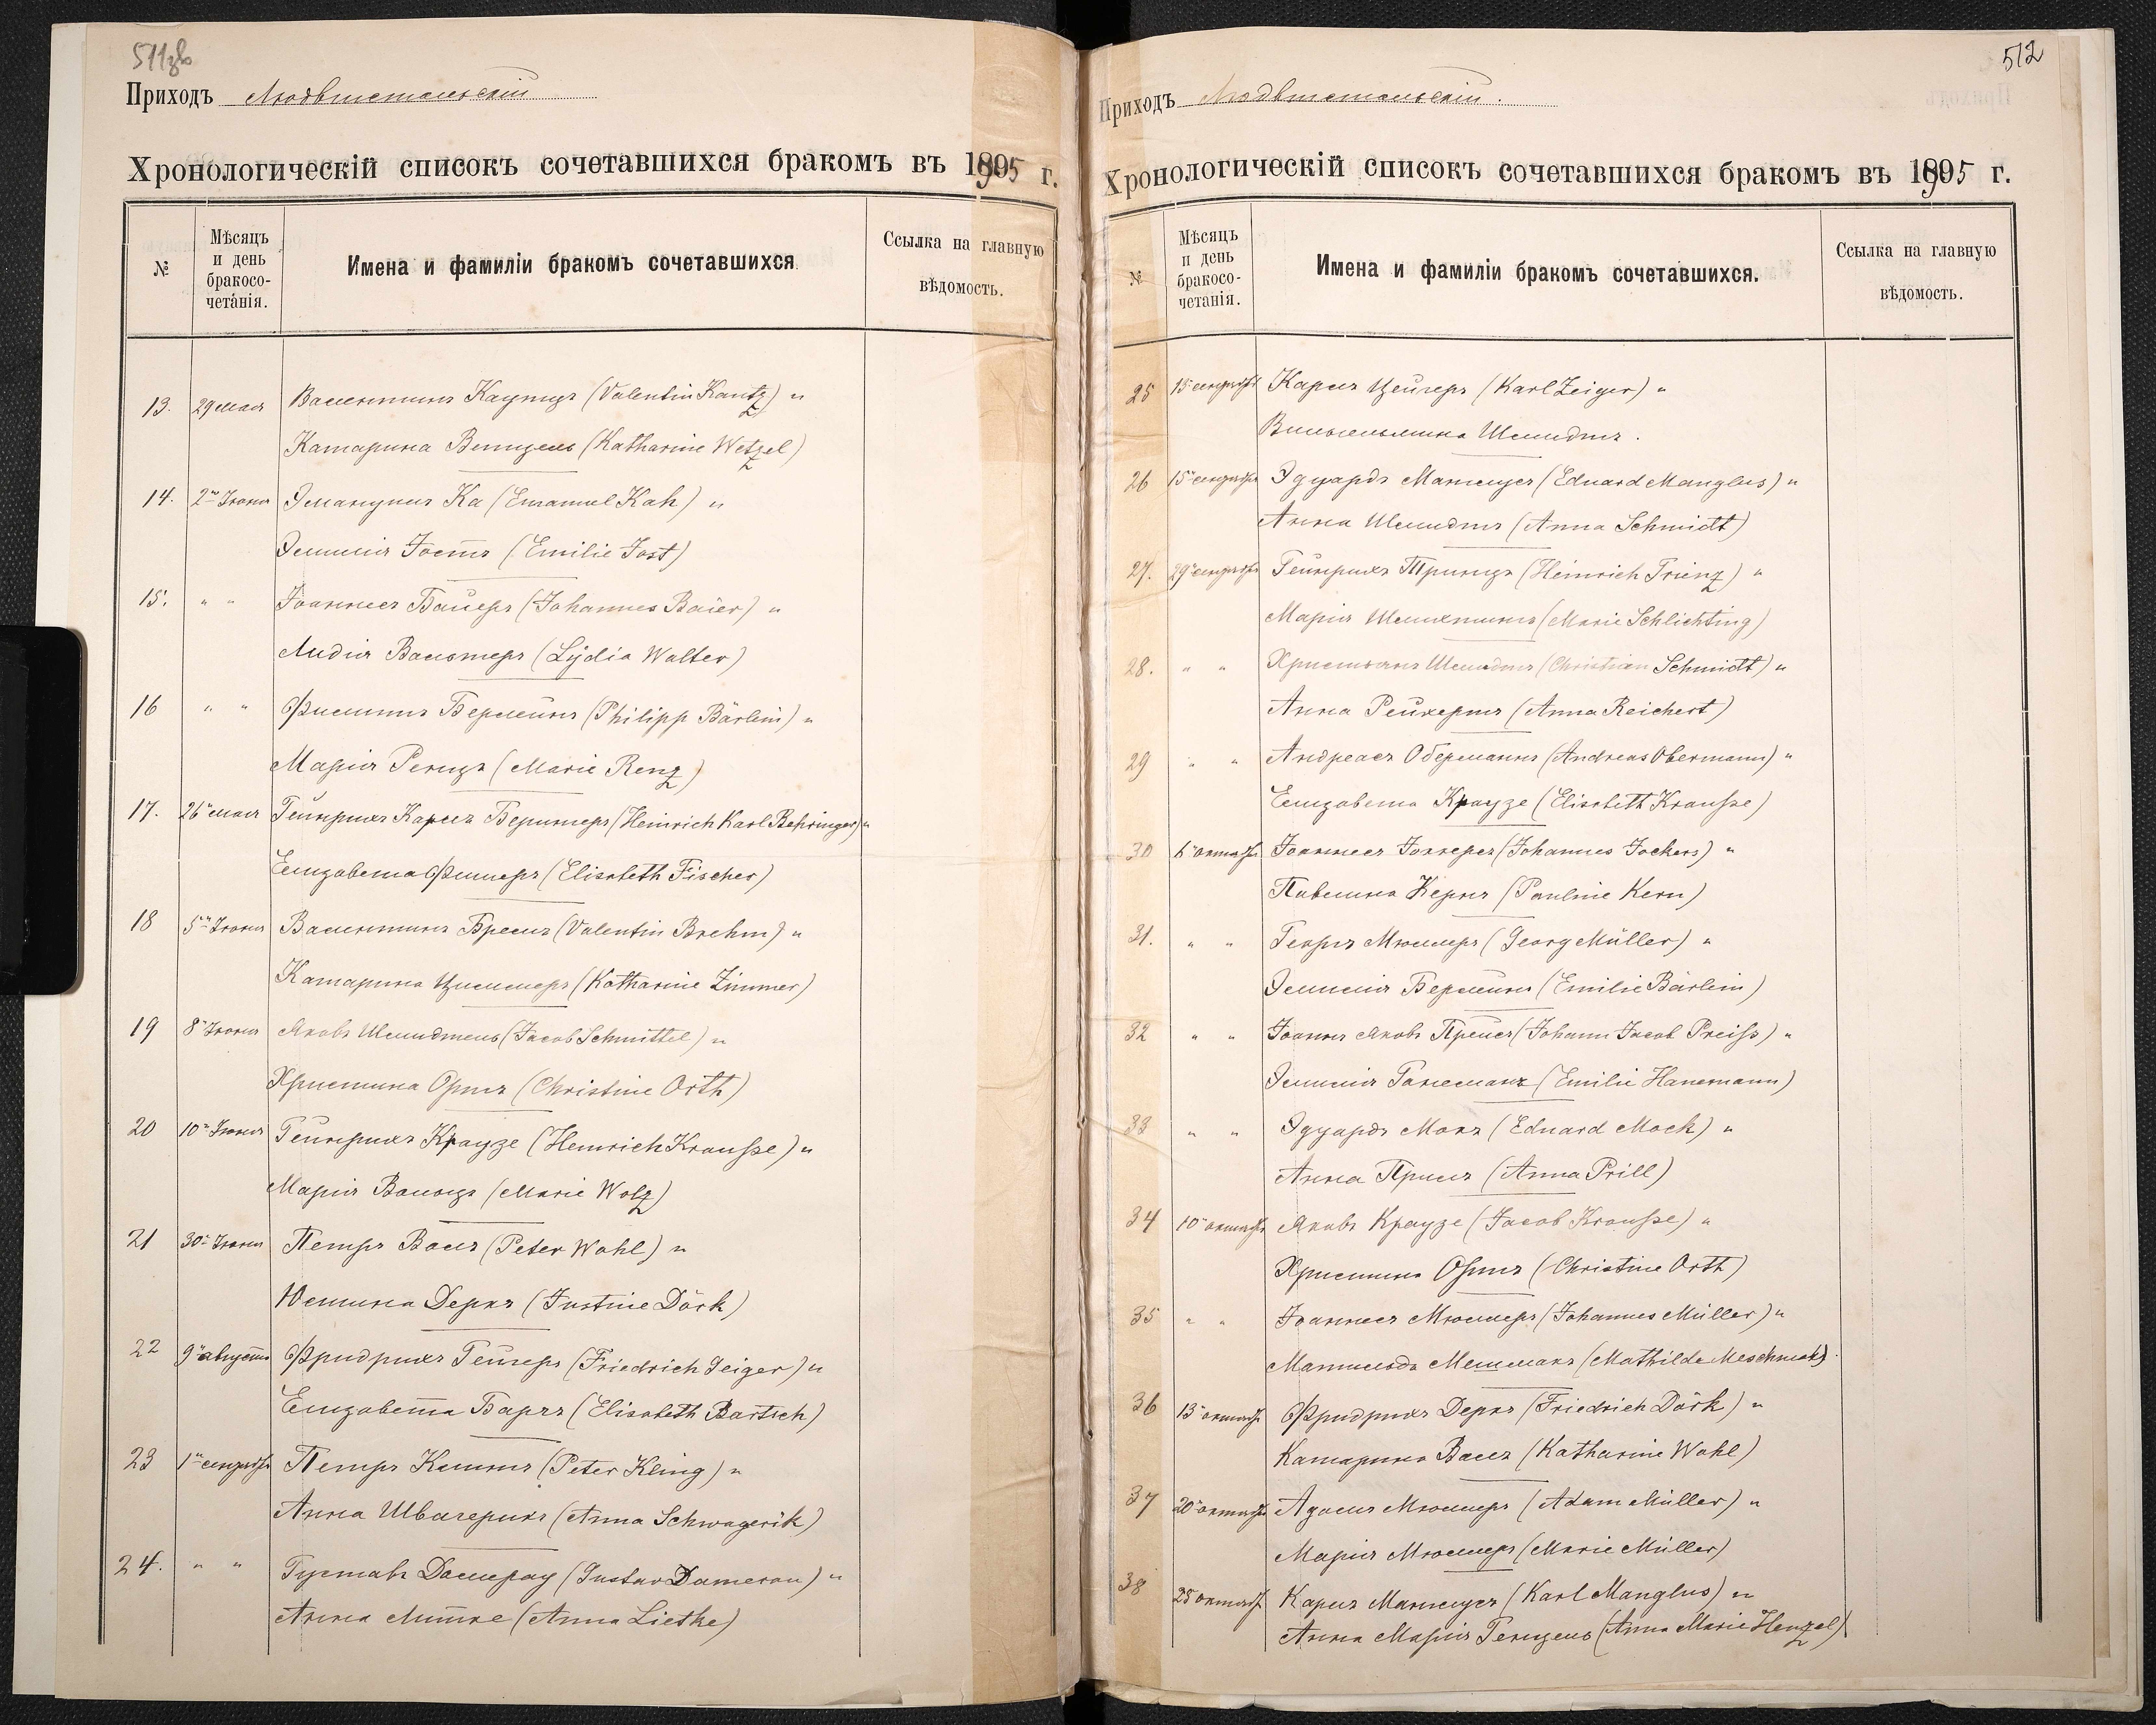 511об
Приходъ Людвигстальскій
Хронологическій списокъ сочетавшихся бракомъ въ 1905 г.
№
Мѣсяцъ и день бракосочетанія.
Имена и фамиліи бракомъ сочетавшихся
Ссылка на главную вѣдомость.
13. 29 мая Валентинъ Каутцъ (Valentin Kautz) "
КатаринаВетцель (Katharine Wetzel)
14. 2го Іюня Эмануилъ Ка (Emanuel Kah) "
Эмилія Іостъ (Emilie Jost)
15. " " Іоаннесъ Байеръ (Johannes Baier) "
Лидія Вальтеръ (Lydia Walter)
16 " " Филиппъ Берлейнъ (Philipp Bärlein) "
Марія Ренцъ (Marie Renz)
17. 26 мая Гейнрихъ Карлъ Берингеръ (Heinrich Karl Behringer) "
Елизавета Фишеръ (Elisabeth Fischer)
18 5го Іюня Валентинъ Бремъ (Valentin Brehm) "
Катарина Циммеръ (Katharine Zimmer)
19 8 Іюня Яковъ Шмидтель (Jacob Schmittel) "
Христина Ортъ (Christine Orth)
20 10 Іюня Гейнрихъ Краузе (Heinrich Krauße) "
Марія Вольцъ (Marie Wolz)
21 30 Іюня Петръ Валъ (Peter Wahl) "
Юстина Деркъ (Justine Dörk)
22 9 августа Фридрихъ Гейгеръ (Friedrich Geiger) "
Елизавета Барчъ (Elisabeth Bartsch)
23 1го сентября Петръ Клингъ (Peter Kling) "
Анна Швагерикъ (Anna Schwagerik)
24. " " Густавъ Дамерау (Gustav Damerau) "
Анна Литке (Anna Lietke)
512
Приходъ Людвигстальскій.
Хронологическій списокъ сочетавшихся бракомъ въ 1905 г.
№
Мѣсяцъ и день бракосочетанія.
Имена и фамиліи бракомъ сочетавшихся.
Ссылка на главную вѣдомость.
25 15 сентября Карлъ Цейгеръ (Karl Zeiger) "
Вильгельмина Шмидтъ.
26 15 сентября Эдуардъ Манглусъ (Eduard Manglus) "
Анна Шмидтъ (Anna Schmidt)
27. 29 сентября Гейнрихъ Тринцъ (Heinrich Trinz) "
Марія Шлихтингъ (Marie Schlichting)
28. " " Христьянъ Шмидтъ (Christian Schmidt) "
Анна Рейхертъ (Anna Reichert)
29 " " Андреасъ Оберманнъ (Andreas Obermann) "
Елизавета Краузе (Elisabeth Krauße)
30 6 октября Іоаннесъ Іоккерсъ (Johannes Jockers) "
Павлина Кернъ (Pauline Kern)
31. " " Георгъ Мюллеръ (Georg Müller) "
Эмилія Берлейнъ (Emilie Bärlein)
32 " " Іоаннъ Яковъ Прейсъ (Johann Jacob Preiß) "
Эмилія Ганеманъ (Emilie Hanemann)
33 " " Эдуардъ Мокъ (Eduard Mock) "
Анна Прилъ (Anna Prill)
34 10 октября Яковъ Краузе (Jacob Krauße) "
Христина Ортъ (Christine Orth)
35 " " Іоаннесъ Мюллеръ (Johannes Müller) "
Матильда Мешмакъ (Mathilde Meschmak).
36 13 октября Фридрихъ Деркъ (Friedrich Dörk) "
Катарина Валъ (Katharine Wahl)
37 20 октября Адамъ Мюллеръ (Adam Müller) "
Марія Мюллеръ (Marie Müller)
38 25 октября Карлъ Манглусъ (Karl Manglus) "
Анна Марія Генцель (Anna Marie Henzel)